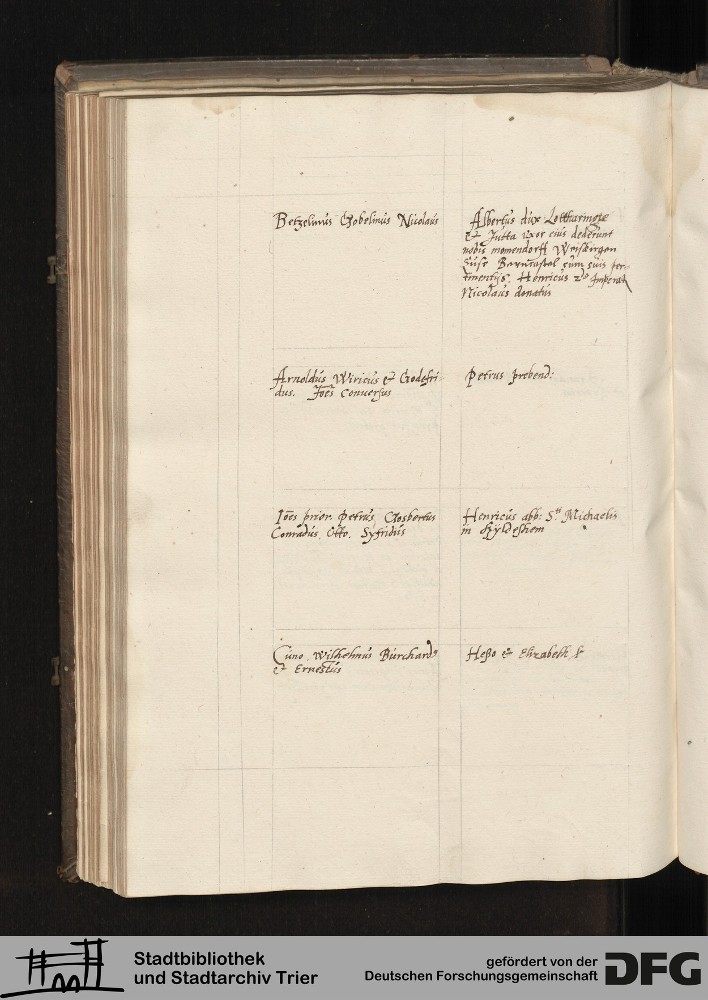 Betzelinus Gobelinus Nicolaus
Albertus dux Lottharingie
et Jutta uxor eius dederunt
nobis momendorff Weisk
Barncastel cum suis per-
tinentijs. Henricus 2us Imperat
Nicolaus donatus
Arnoldus Wiricus et Godefri-
dus. Joes Conuersus
Petrus prebend:
Joes prior. Petrus, Gosbertus
Conradus, Otto, Syfridus
Henricus abb: Sti Michaelis
in Hyldeshem
Cuno, Wilhelmus Burchard9
et Ernestus
Heßo et Elizabeth
Stadtbibliothek
und Stadtarchiv Trier
gefördert von der
Deutschen Forschungsgemeinschaft
DFG